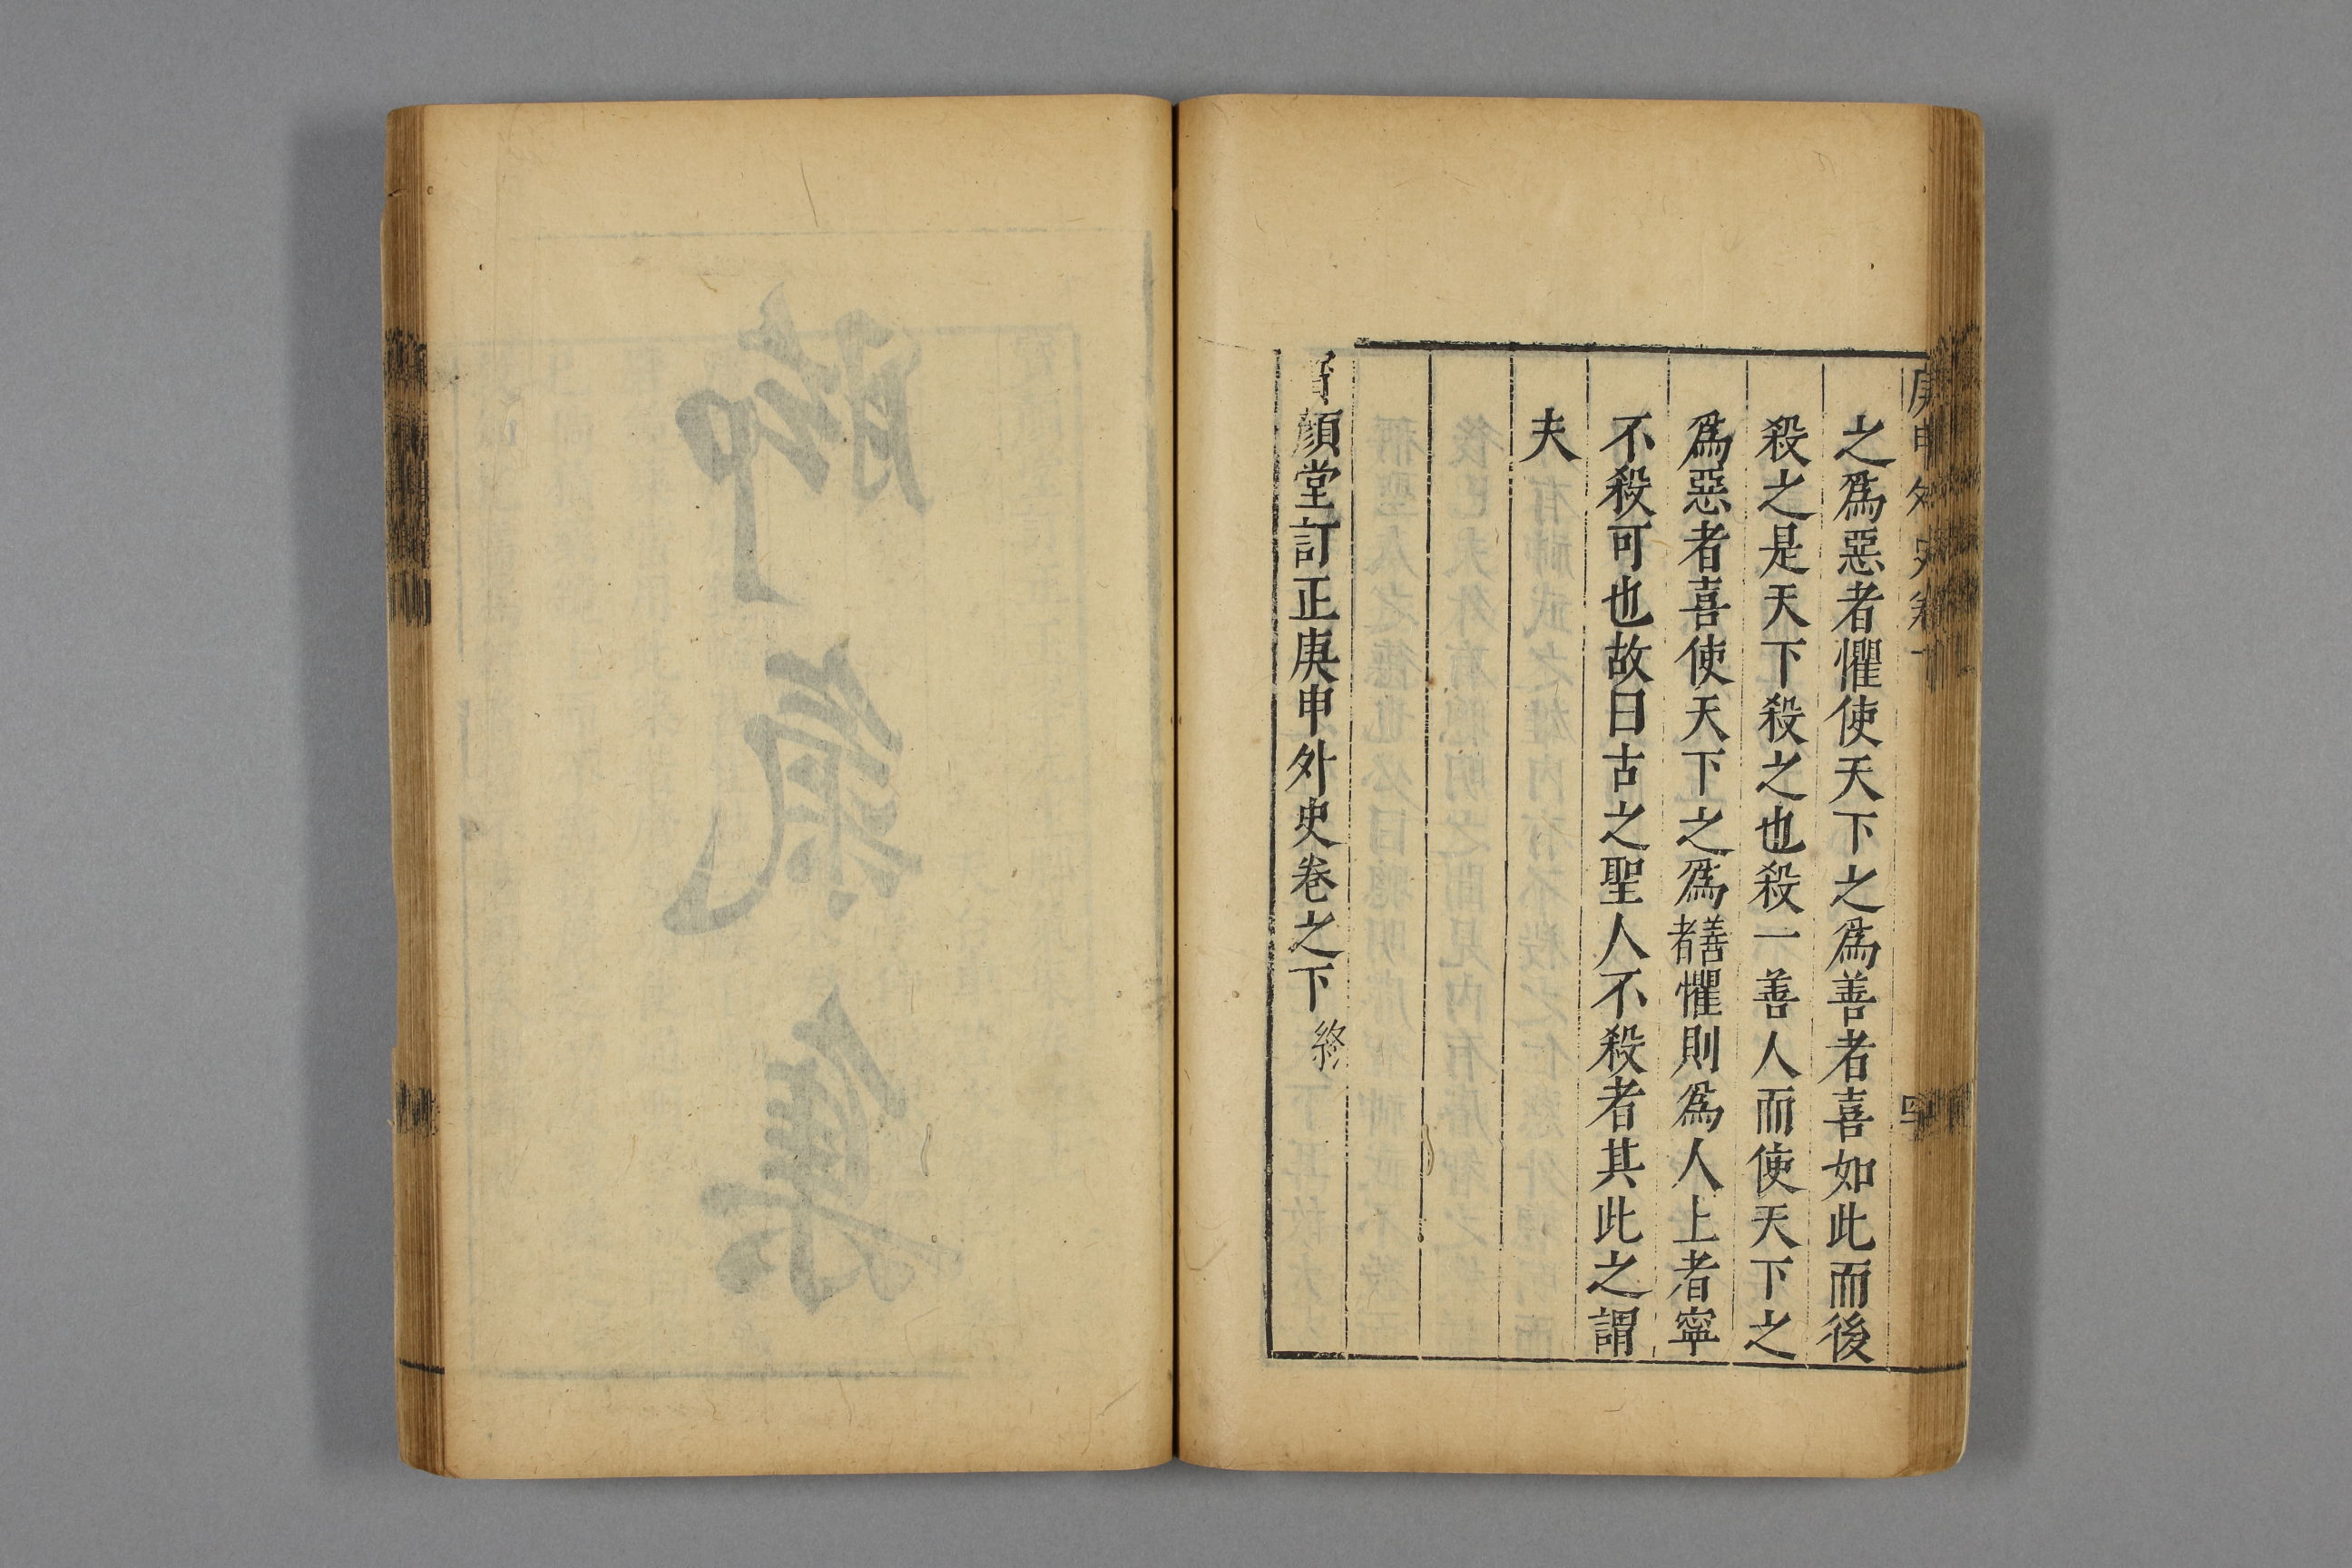 之爲惡者懼使天下之爲善者喜如此而後
殺之是天下殺之也殺一善人而使天下之
爲惡者喜使天下之爲善者懼則爲人上者寧
不殺可也故曰古之聖人不殺者其此之謂
夫
顏堂訂正庚申外史卷之下 終